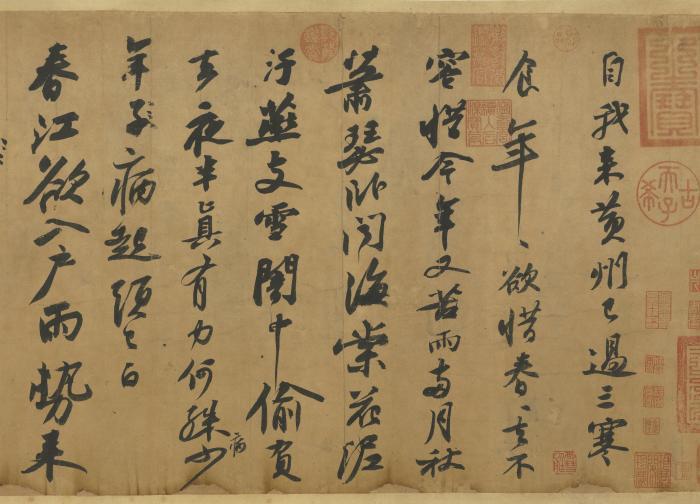 古希天子
自我来黄州已過三寒
食年〻欲惜春〻去不
容惜今年又苦雨兩月秋
蕭瑟卧聞海棠花泥
汙燕支雪闇中偷負
去夜半真有力何殊少
病
年子病起頭已白
春江欲入户雨勢来